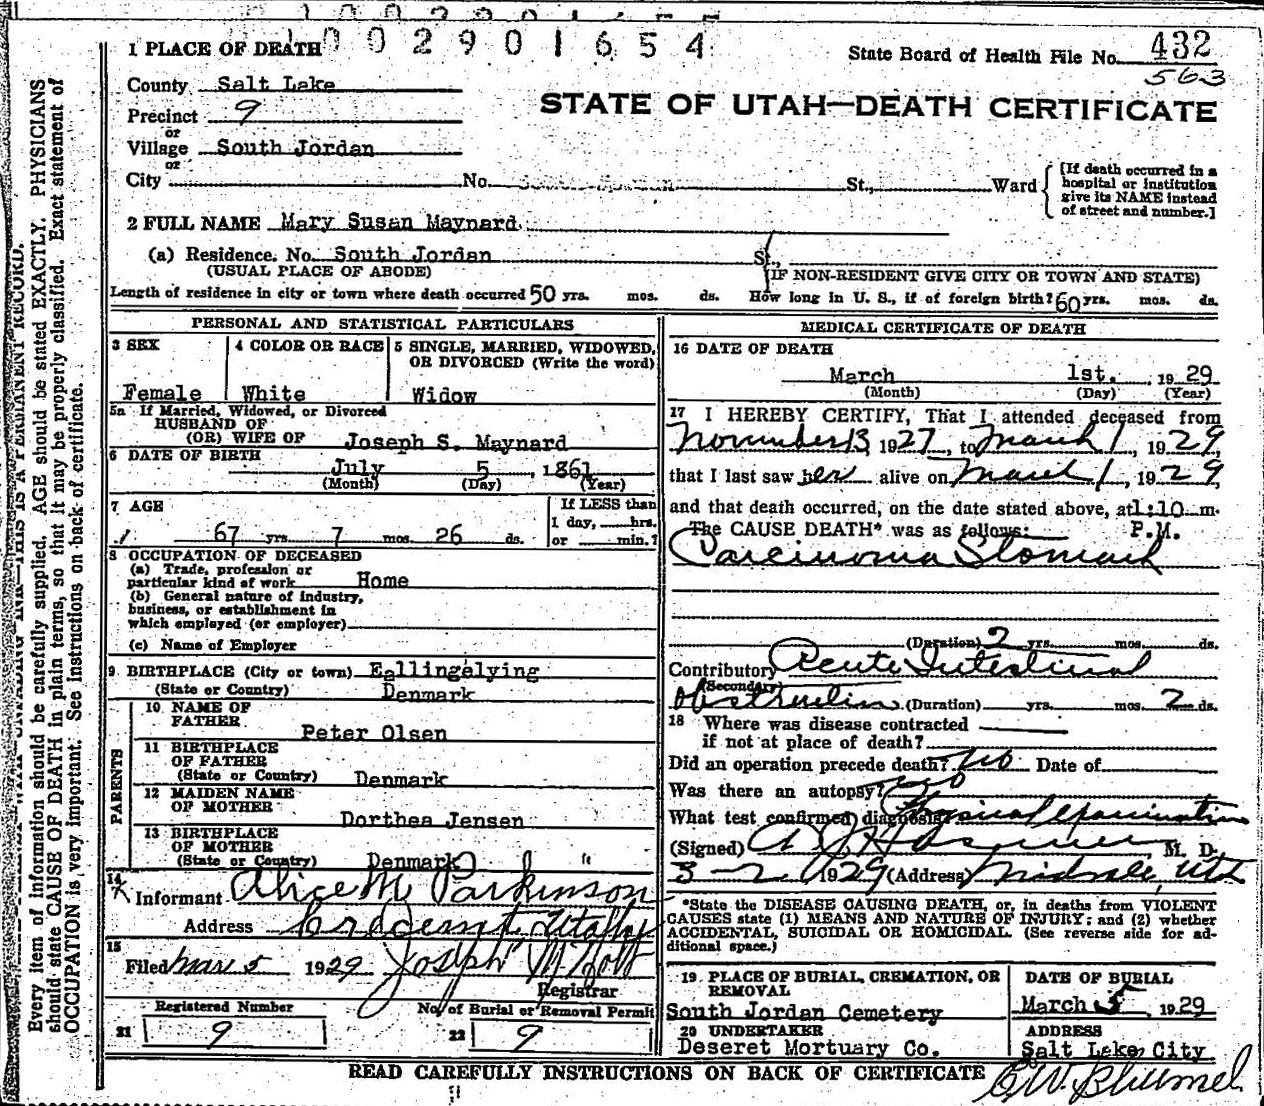 1002901654
1 PLACE OF DEATH
State Board of Health File No. 432
563
County Salt Lake
STATE OF UTAH—DEATH CERTIFICATE
Precinct 9
or
Village South Jordan
or
City No. St., Ward
[If death occurred in a hospital or institution give its NAME instead of street and number.]
2 FULL NAME Mary Susan Maynard
(a) Residence. No. South Jordan St.,
(USUAL PLACE OF ABODE) (IF NON-RESIDENT GIVE CITY OR TOWN AND STATE)
Length of residence in city or town where death occurred 50 yrs. mos. ds. How long in U. S., if of foreign birth? 60 yrs. mos. ds.
PERSONAL AND STATISTICAL PARTICULARS
3 SEX
Female
4 COLOR OR RACE
White
5 SINGLE, MARRIED, WIDOWED,
OR DIVORCED (Write the word)
Widow
5a If Married, Widowed, or Divorced
HUSBAND OF
(OR) WIFE OF Joseph S. Maynard
6 DATE OF BIRTH
July 5, 1861
(Month) (Day) (Year)
7 AGE
67 yrs 7 mos. 26 ds.
If LESS than
1 day, hrs.
or min.?
8 OCCUPATION OF DECEASED
(a) Trade, profession or
particular kind of work Home
(b) General nature of industry,
business, or establishment in
which employed (or employer)
(c) Name of Employer
9 BIRTHPLACE (City or town) Eallingelying
(State or Country) Denmark
PARENTS
10 NAME OF
FATHER Peter Olsen
11 BIRTHPLACE
OF FATHER
(State or Country) Denmark
12 MAIDEN NAME
OF MOTHER
Dorthea Jensen
13 BIRTHPLACE
OF MOTHER
(State or Country) Denmark
14
Informant Alice M Parkinson
Address Utah
15
Filed Mar 5 1929 Joseph M Holt
Registrar
Registered Number No. of Burial or Removal Permit
21 9 22 9
MEDICAL CERTIFICATE OF DEATH
16 DATE OF DEATH
March 1st. 1929
(Month) (Day) (Year)
17 I HEREBY CERTIFY, That I attended deceased from
November 13, 1927, to March 1, 1929,
that I last saw her alive on March 1, 1929,
and that death occurred, on the date stated above, at 1:10 m.
The CAUSE DEATH* was as follows: P.M.
Carcinoma Stomach
(Duration) 2 yrs. mos. ds.
Contributory Acute Intestinal
(Secondary)
Obstruction (Duration) yrs. mos. 2 ds.
18 Where was disease contracted
if not at place of death?
Did an operation precede death? No Date of
Was there an autopsy? No
What test confirmed diagnosis? Physical Examination
(Signed) M. D.
3-2 1929 (Address) Midvale, Utah
*State the DISEASE CAUSING DEATH, or, in deaths from VIOLENT
CAUSES state (1) MEANS AND NATURE OF INJURY; and (2) whether
ACCIDENTAL, SUICIDAL OR HOMICIDAL. (See reverse side for ad-
ditional space.)
19 PLACE OF BURIAL, CREMATION, OR
REMOVAL
South Jordan Cemetery
DATE OF BURIAL
March 5 1929
20 UNDERTAKER
Deseret Mortuary Co.
ADDRESS
Salt Lake City
READ CAREFULLY INSTRUCTIONS ON BACK OF CERTIFICATE
Every item of information should be carefully supplied. AGE should be stated EXACTLY. PHYSICIANS
should state CAUSE OF DEATH in plain terms, so that it may be properly classified. Exact statement of
OCCUPATION is very important. See instructions on back of certificate.